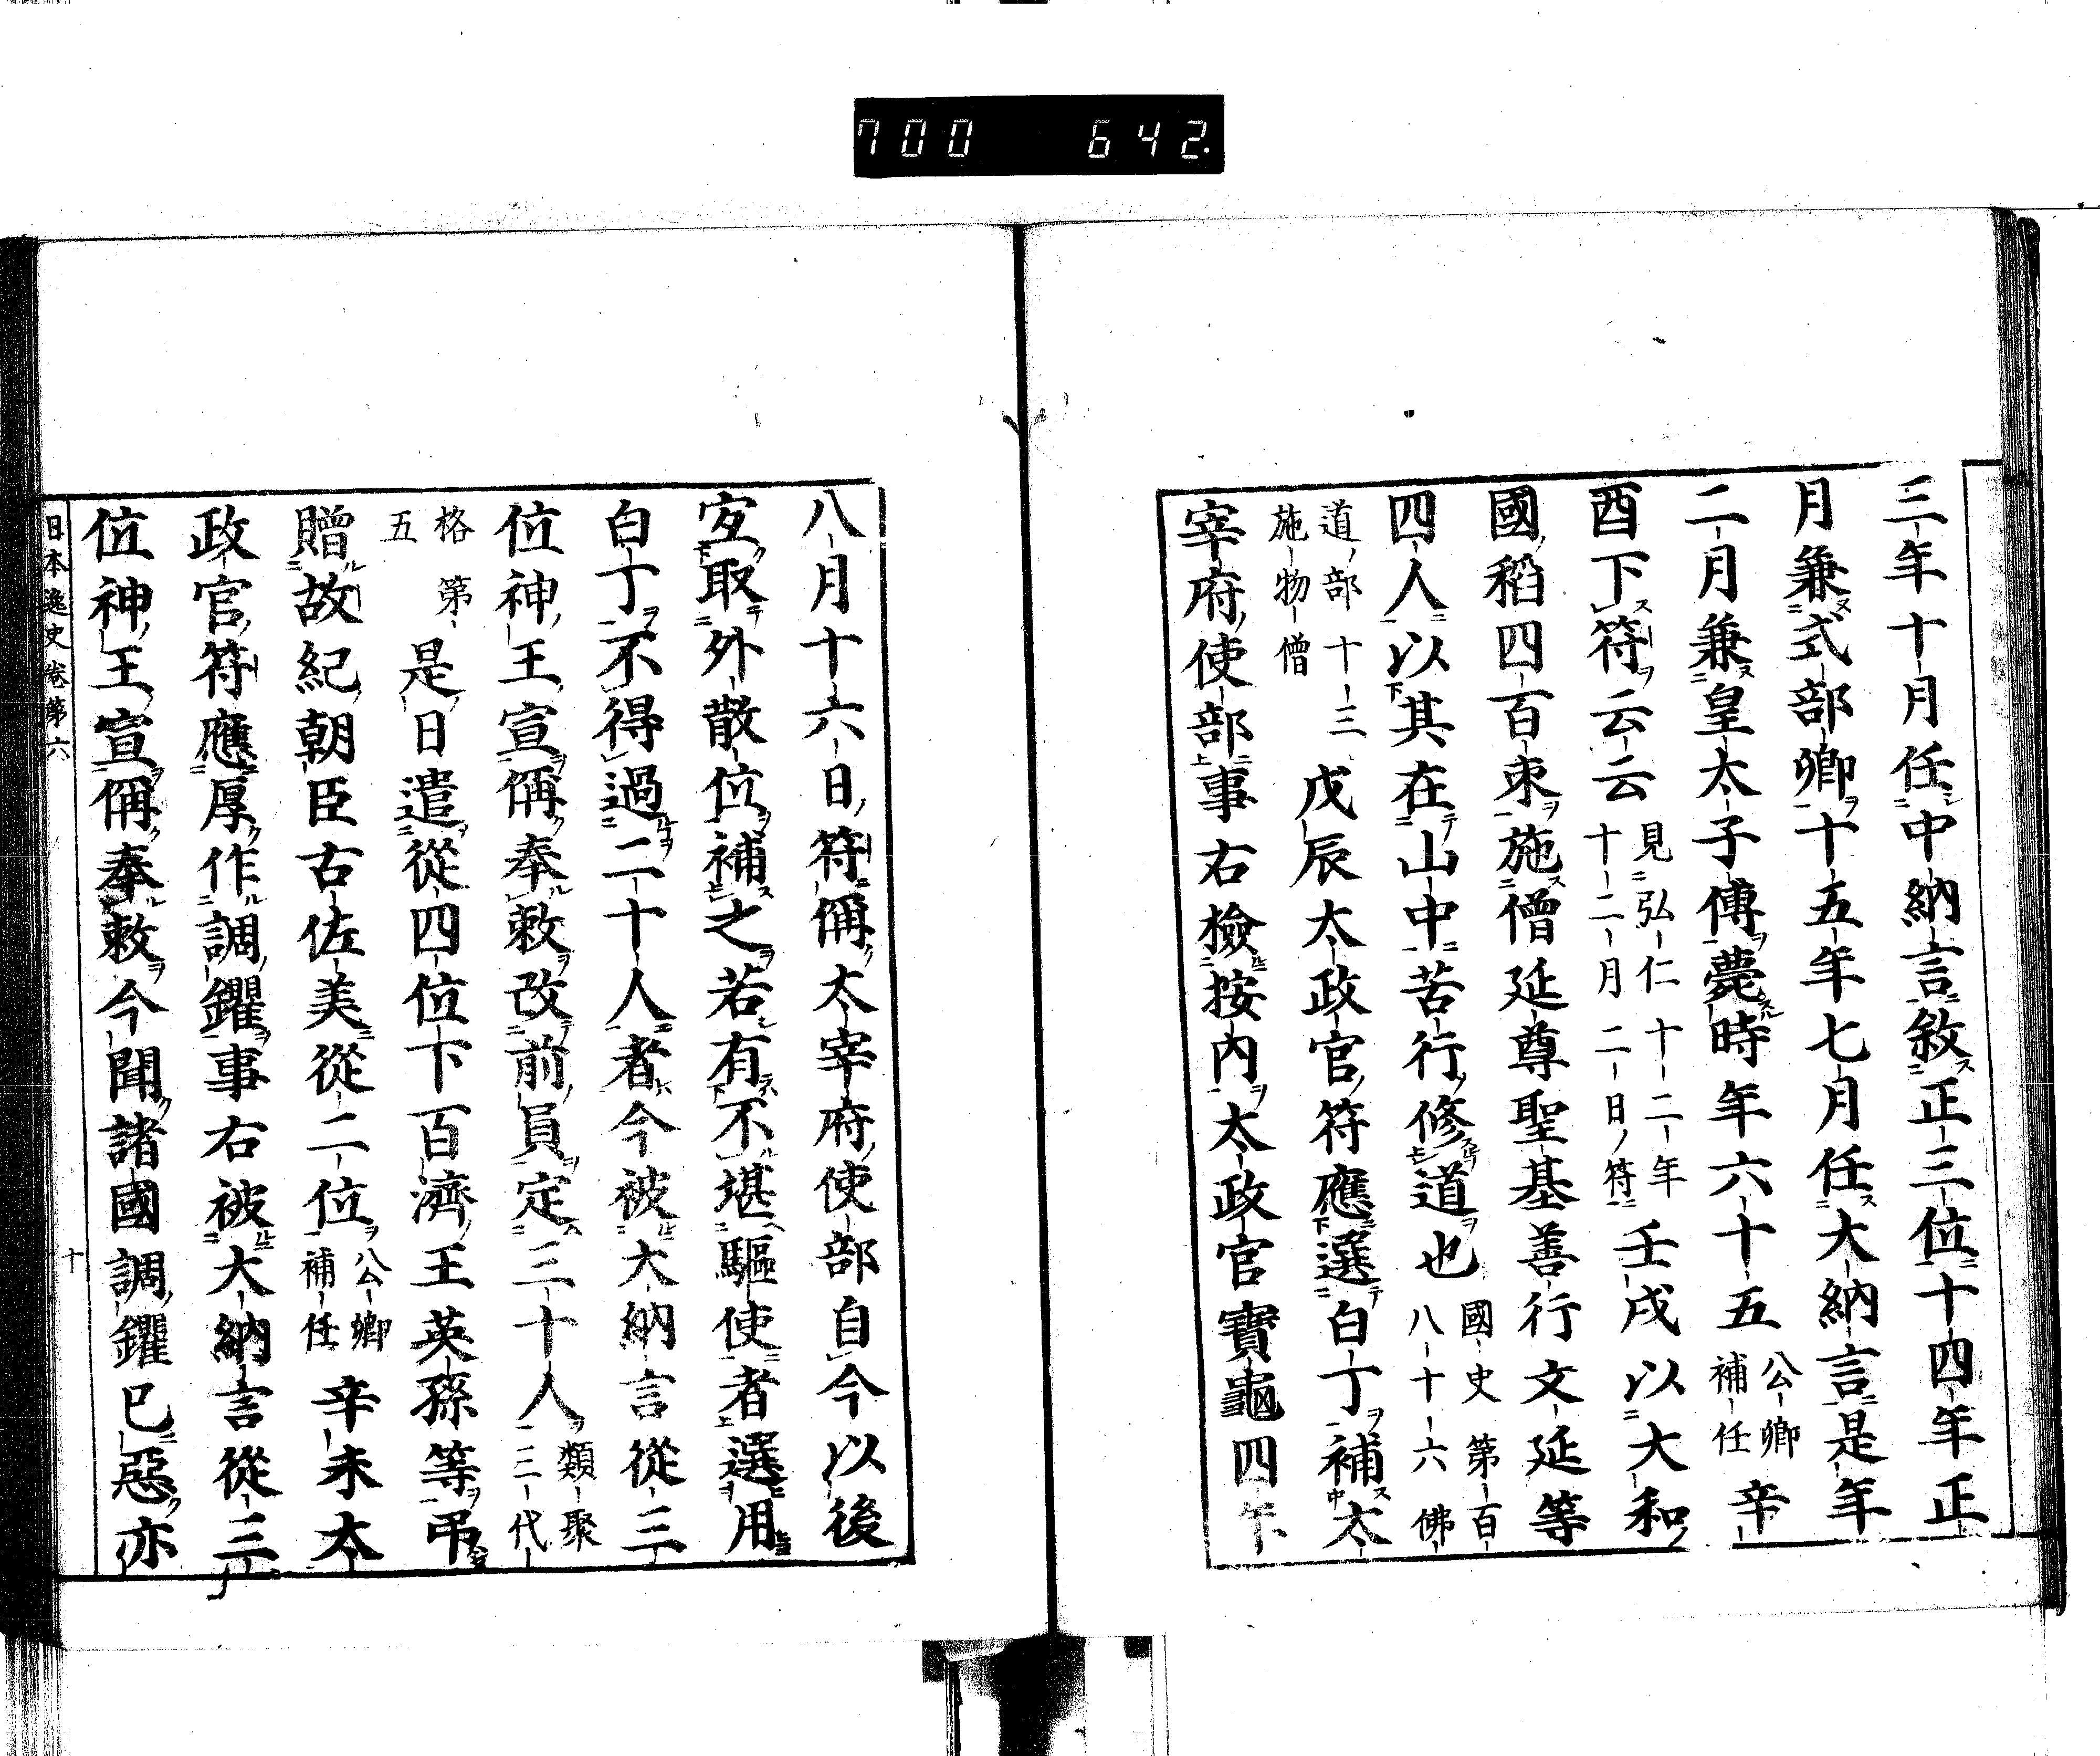 700 642.
三年十月任中納言敘正三位十四年正
月兼式部卿十五年七月任大納言是年
二月兼皇太子傅薨時年六十五公卿補任辛
酉下符云云見弘仁十二年十二月二日符壬戌以大和
國稻四百束施僧延尊聖基善行文延等
四人以其在山中苦行修道也國史第百八十六佛
道部十三施物僧戊辰太政官符應選白丁補太
宰府使部事右檢按內太政官寶龜四年
八月十六日符偁太宰府使部自今以後
宜取外散位補之若有不堪驅使者選用
白丁不得過二十人者今被大納言從三
位神王宣偁奉敕改前員定三十人類聚三代
格第五是日遣從四位下百濟王英孫等弔
贈故紀朝臣古佐美從二位公卿補任辛未太
政官符應厚作調钁事右被大納言從三
位神王宣偁奉敕今聞諸國調钁已惡亦
日本逸史卷第六 十